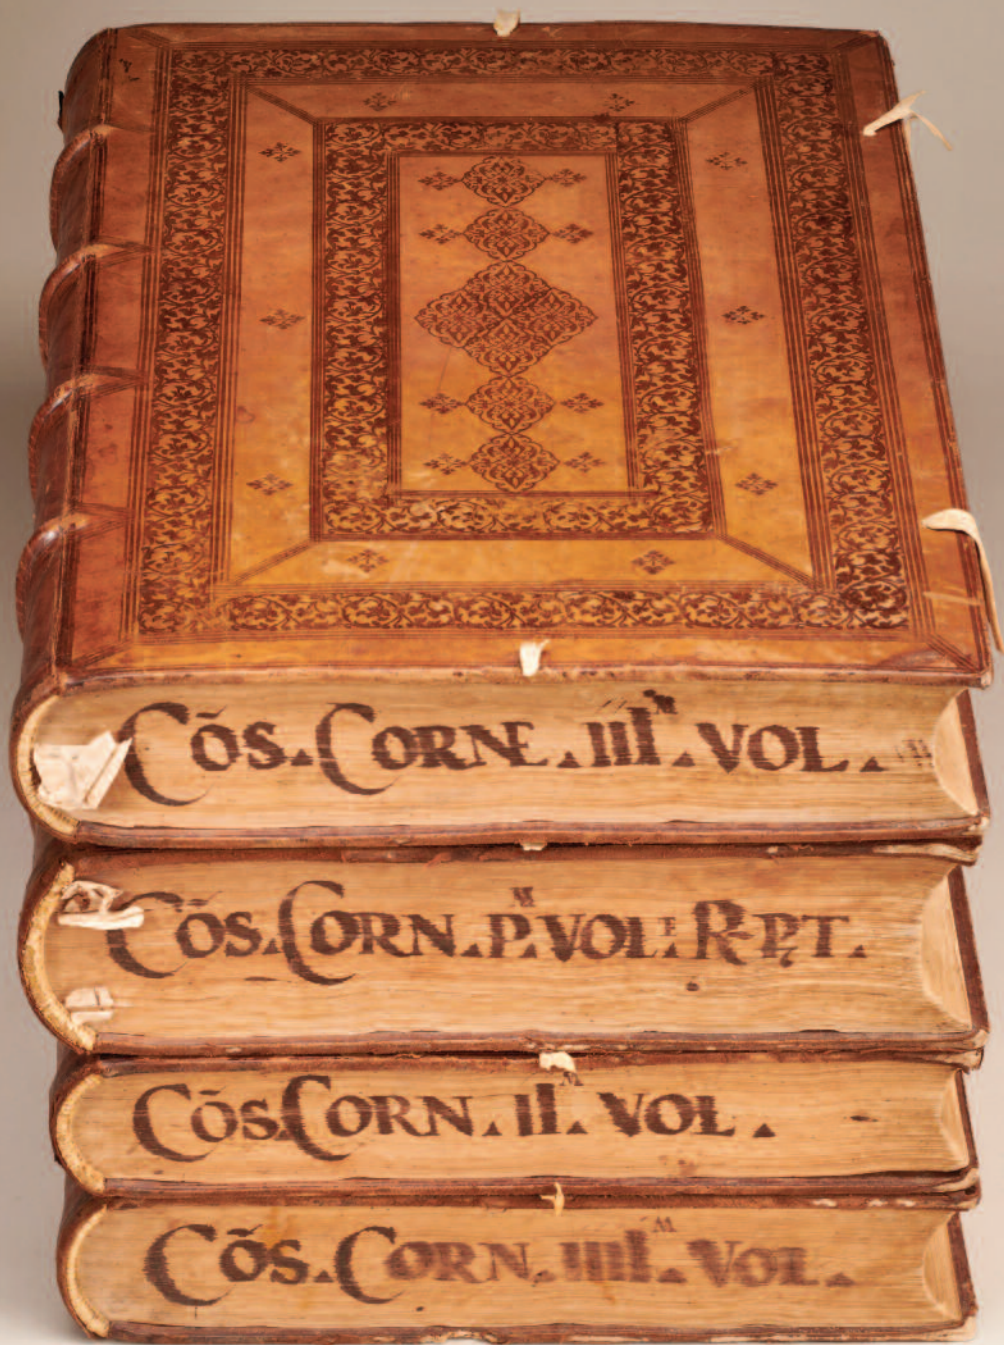 CÕS. CORNE. III^M. VOL.
CÕS. CORN. P^M. VOL. ET R-PT.
CÕS. CORN. II^M. VOL.
CÕS. CORN. IIII^M. VOL.